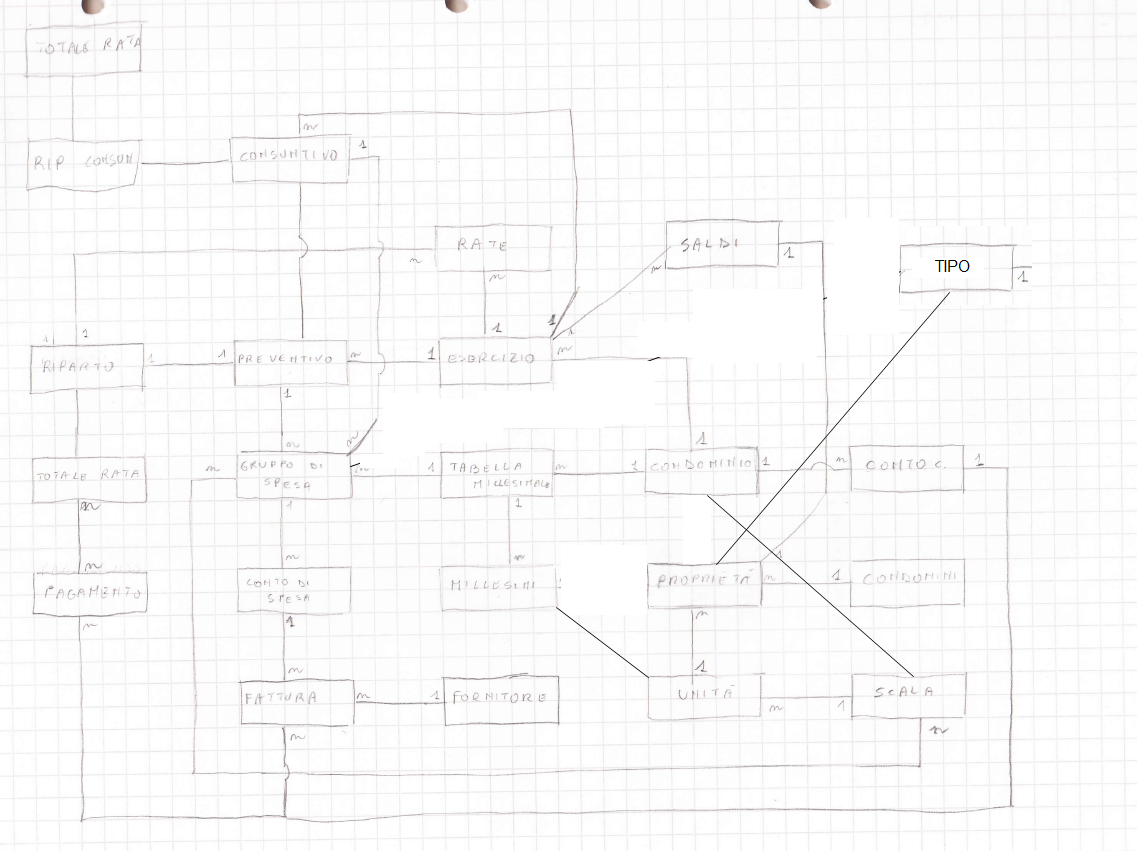 TOTALE RATA
n
1
RIP CONSUN
CONSUNTIVO
RATE
SALDI
1
TIPO
1
n
n
n
1
1
1
1
1
RIPARTO
1
1
PREVENTIVO
n
1
ESERCIZIO
n
1
n
n
1
TOTALE RATA
n
GRUPPO DI
SPESA
n
1
TABELLA
MILLESIMALE
n
1
CONDOMINIO
1
n
CONTO C.
1
n
1
1
n
n
n
1
PAGAMENTO
CONTO DI
SPESA
MILLESIMI
1
PROPRIETÀ
n
1
CONDOMINI
n
1
n
n
1
FATTURA
n
1
FORNITORE
UNITÀ
n
1
SCALA
n
n